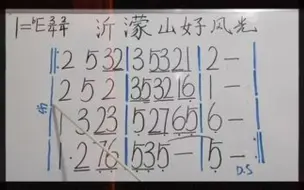 1=♭E 沂蒙山好风光
‖: 2 5 32 | 3 5321 | 2 — |
2 5 2 | 353216 | 1 — |
3 23 | 52765 | 6 — |
1·276 | 535— | 5 — :‖
D.S